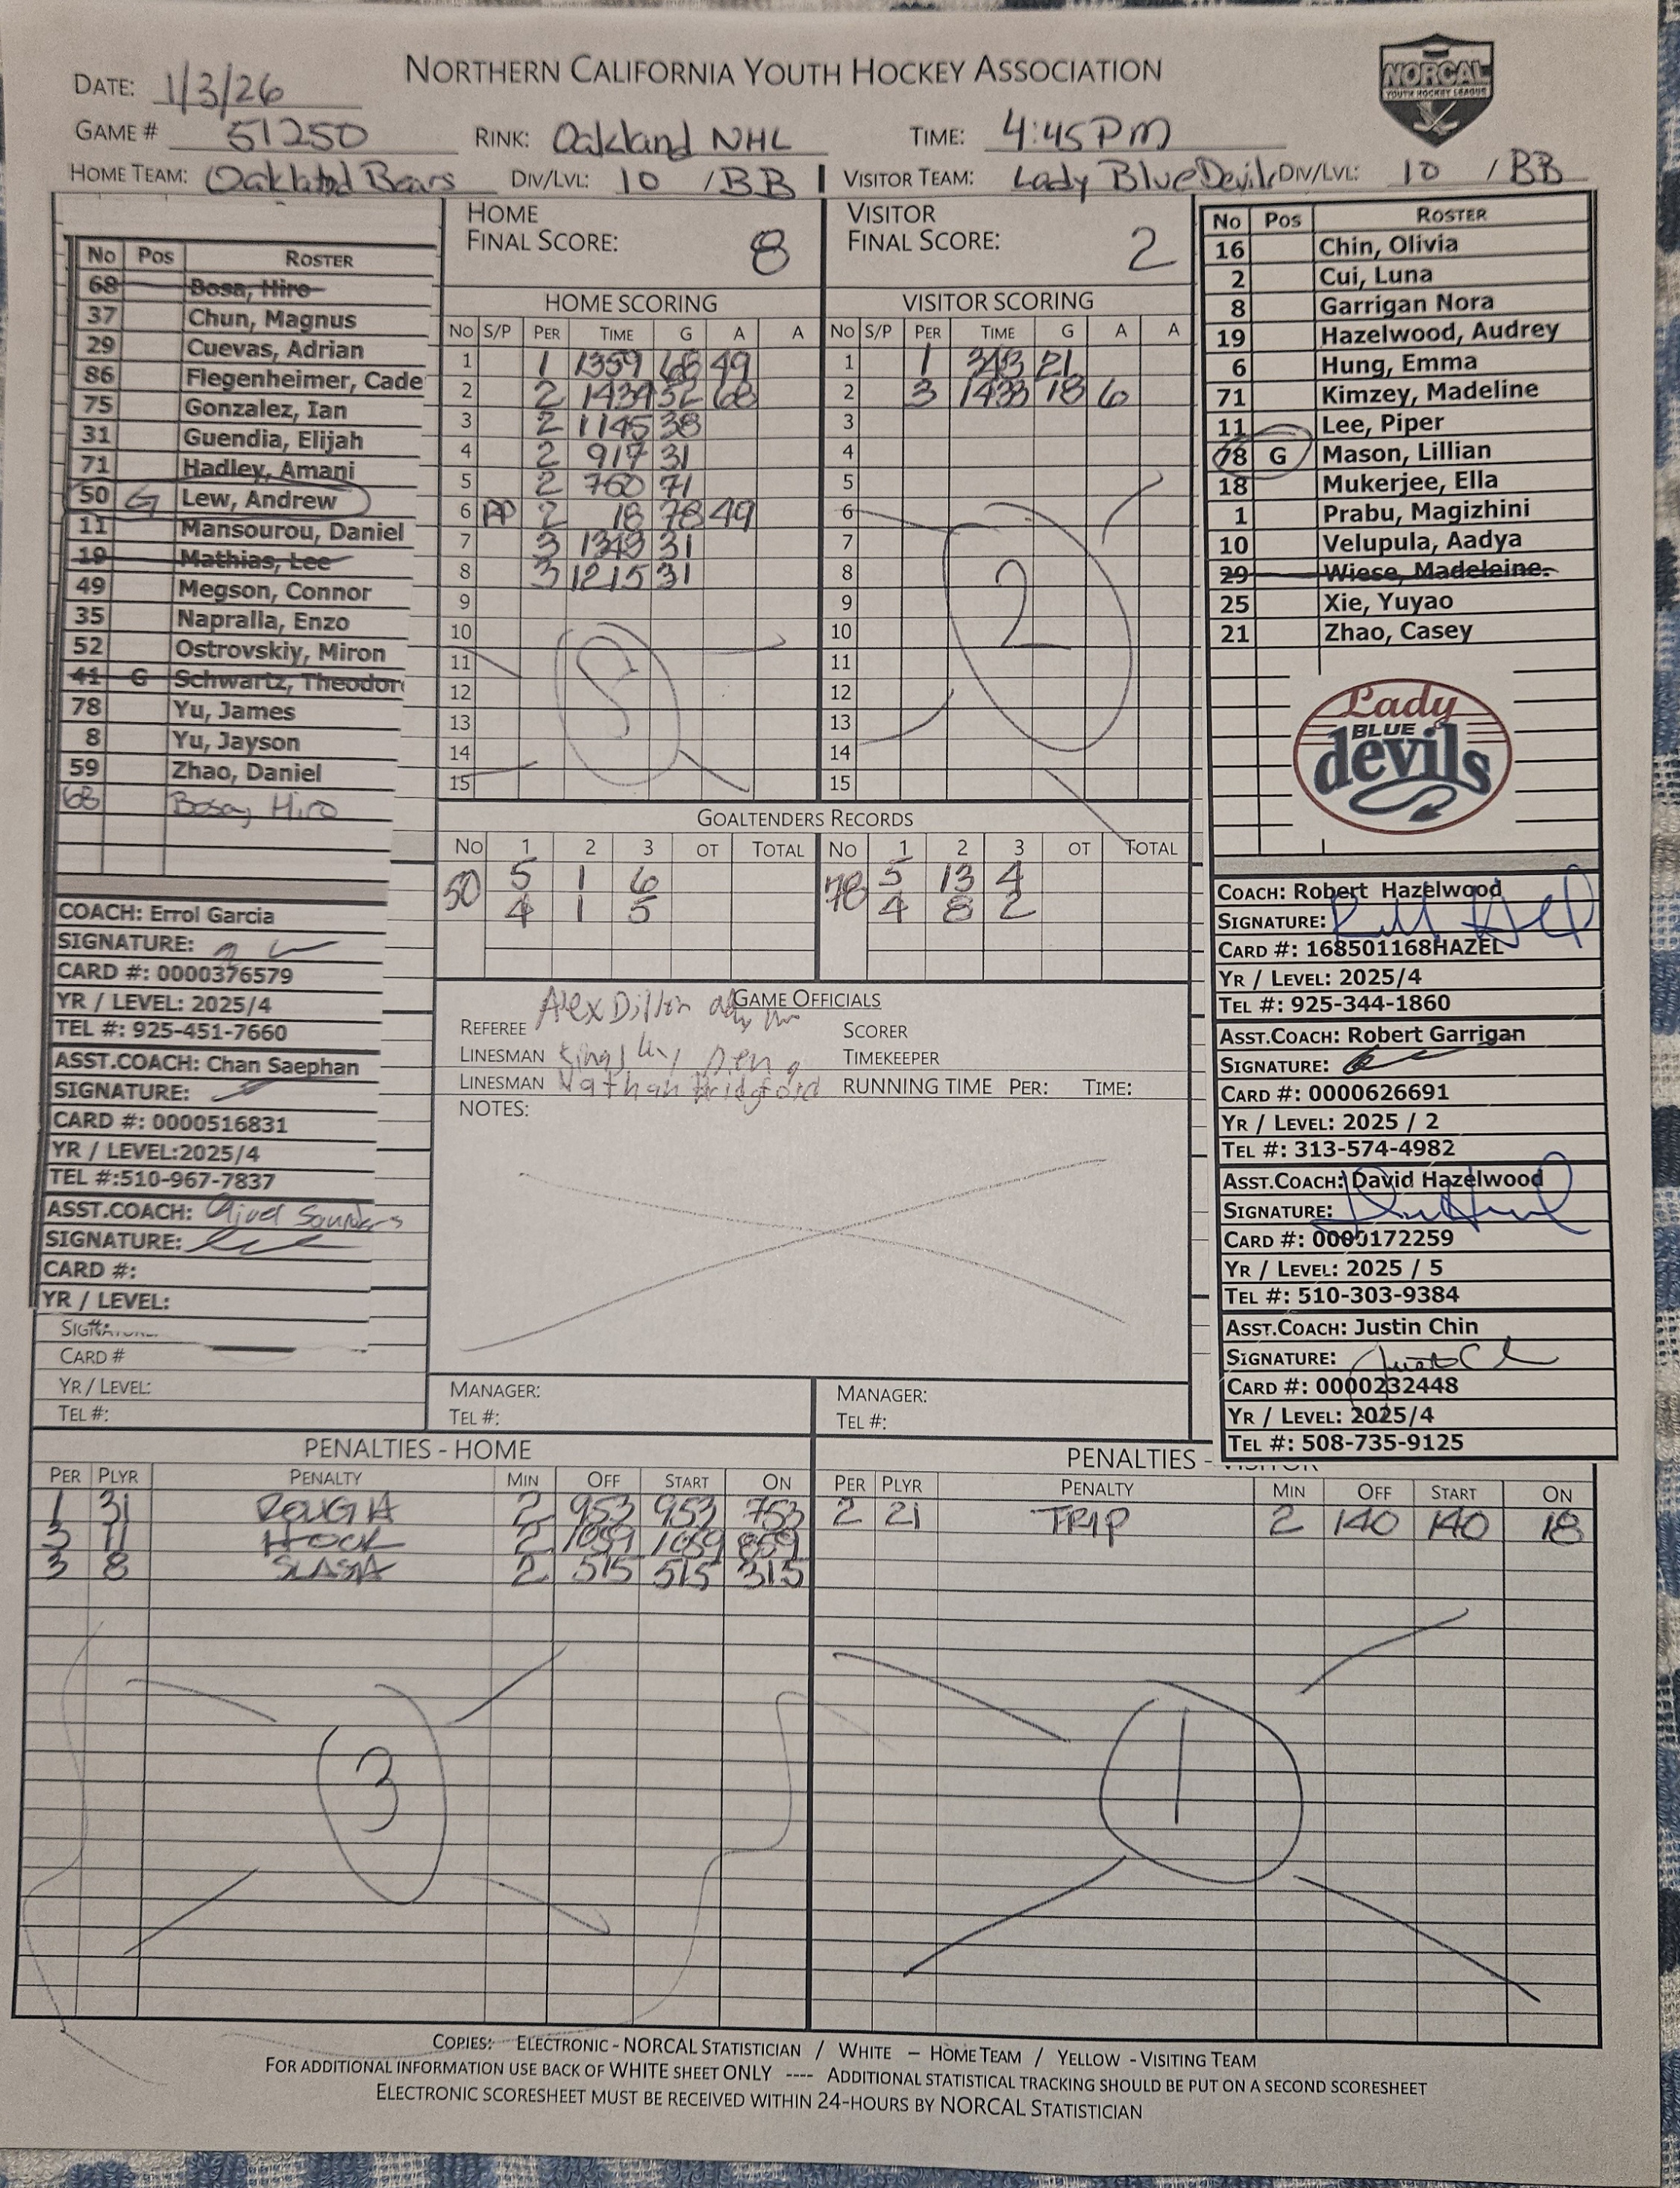 NORTHERN CALIFORNIA YOUTH HOCKEY ASSOCIATION
NORCAL
YOUTH HOCKEY LEAGUE
DATE: 1/3/26
GAME # 51250 RINK: Oakland NHL TIME: 4:45PM
HOME TEAM: Bears DIV/LVL: 10 / BB VISITOR TEAM: Lady BlueDevils DIV/LVL: 10 / BB
No Pos ROSTER
68 Bosa, Hiro
37 Chun, Magnus
29 Cuevas, Adrian
86 Flegenheimer, Cade
75 Gonzalez, Ian
31 Guendia, Elijah
71 Hadley, Amani
50 G Lew, Andrew
11 Mansourou, Daniel
19 Mathias, Lee
49 Megson, Connor
35 Napralla, Enzo
52 Ostrovskiy, Miron
41 G Schwartz, Theodor
78 Yu, James
8 Yu, Jayson
59 Zhao, Daniel
68 Bosa, Hiro
COACH: Errol Garcia
SIGNATURE:
CARD #: 0000376579
YR / LEVEL: 2025/4
TEL #: 925-451-7660
ASST.COACH: Chan Saephan
SIGNATURE:
CARD #: 0000516831
YR / LEVEL:2025/4
TEL #:510-967-7837
ASST.COACH: Saunders
SIGNATURE:
CARD #:
YR / LEVEL:
CARD #
YR / LEVEL:
TEL #:
HOME
FINAL SCORE: 8
HOME SCORING
NO S/P PER TIME G A A
1 1 1359 68 49
2 2 1434 52 68
3 2 1145 38
4 2 917 31
5 2 760 71
6 PP 2 18 78 49
7 3 1343 31
8 3 1215 31
9
10
11
12
13
14
15
8
VISITOR
FINAL SCORE: 2
VISITOR SCORING
NO S/P PER TIME G A A
1 1 343 21
2 3 1433 18 6
3
4
5
6
7
8
9
10
11
12
13
14
15
2
GOALTENDERS RECORDS
NO 1 2 3 OT TOTAL NO 1 2 3 OT TOTAL
50 5 1 6 78 5 13 4
4 1 5 4 8 2
GAME OFFICIALS
REFEREE Alex Dillon SCORER
LINESMAN TIMEKEEPER
LINESMAN Nathan RUNNING TIME PER: TIME:
NOTES:
MANAGER: MANAGER:
TEL #: TEL #:
No Pos ROSTER
16 Chin, Olivia
2 Cui, Luna
8 Garrigan Nora
19 Hazelwood, Audrey
6 Hung, Emma
71 Kimzey, Madeline
11 Lee, Piper
78 G Mason, Lillian
18 Mukerjee, Ella
1 Prabu, Magizhini
10 Velupula, Aadya
29 Wiese, Madeleine.
25 Xie, Yuyao
21 Zhao, Casey
Lady
BLUE
devils
COACH: Robert Hazelwood
SIGNATURE:
CARD #: 168501168HAZEL
YR / LEVEL: 2025/4
TEL #: 925-344-1860
ASST.COACH: Robert Garrigan
SIGNATURE:
CARD #: 0000626691
YR / LEVEL: 2025 / 2
TEL #: 313-574-4982
ASST.COACH: David Hazelwood
SIGNATURE:
CARD #: 0000172259
YR / LEVEL: 2025 / 5
TEL #: 510-303-9384
ASST.COACH: Justin Chin
SIGNATURE:
CARD #: 0000232448
YR / LEVEL: 2025/4
TEL #: 508-735-9125
PENALTIES - HOME
PER PLYR PENALTY MIN OFF START ON
1 31 ROUGH 2 953 953 753
3 11 HOOK 2 1059 1059 859
3 8 SLASH 2 515 515 315
3
PENALTIES -
PER PLYR PENALTY MIN OFF START ON
2 21 TRIP 2 140 140 18
1
COPIES: ELECTRONIC - NORCAL STATISTICIAN / WHITE – HOME TEAM / YELLOW - VISITING TEAM
FOR ADDITIONAL INFORMATION USE BACK OF WHITE SHEET ONLY ---- ADDITIONAL STATISTICAL TRACKING SHOULD BE PUT ON A SECOND SCORESHEET
ELECTRONIC SCORESHEET MUST BE RECEIVED WITHIN 24-HOURS BY NORCAL STATISTICIAN